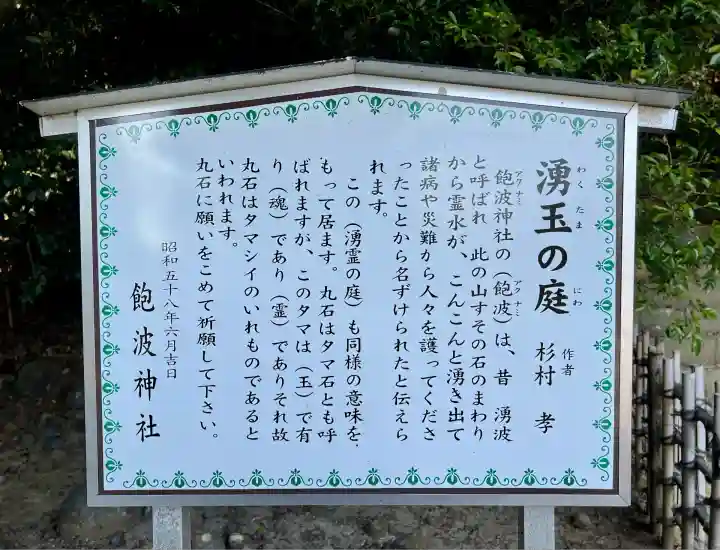 湧玉の庭
わく たま にわ
作者
杉村 孝
アクナミ アクナミ
飽波神社の(飽波)は、昔 湧波
と呼ばれ 此の山すその石のまわり
から霊水が、こんこんと湧き出て
諸病や災難から人々を護ってくださ
ったことから名ずけられたと伝えら
れます。
この(湧霊の庭)も同様の意味を、
もって居ます。丸石はタマ石とも呼
ばれますが、このタマは(玉)で有
り(魂)であり(霊)でありそれ故
丸石はタマシイのいれものであると
いわれます。
丸石に願いをこめて祈願して下さい。
昭和五十八年六月吉日
飽波神社